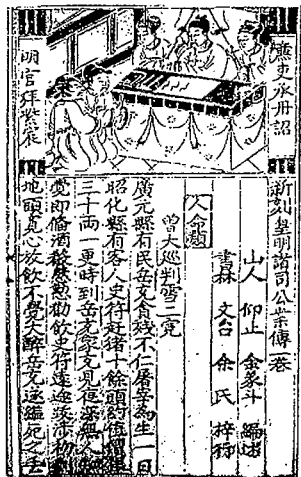 廉吏承丹詔
明官拜紫宸
新刻皇明諸司公案傳一卷
山人 仰止 余象斗 編述
書林 文台 余氏 梓行
人命類
曾大巡判雪二冤
廣元縣有民岳充貪殘不仁屠宰為生一日
昭化縣有客人史符赶猪十餘頭約值銀
三十兩一更時到岳充家充見夜深無人知
覺即備酒殽慇懃勸飲史符遠涉
地頭寬心放飲不覺大醉岳充遂縊死之丟